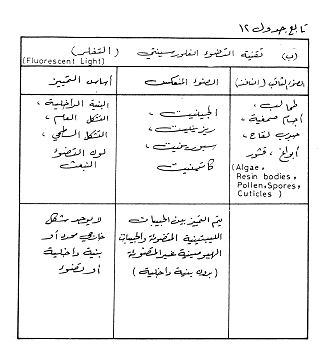 تابع جدول ١٢
(ب) تقنية التضوء الفلورسينتي (التفلر)
(Fluorescent Light)
الضوء الثاقب (النافذ)
الضوء المنعكس
أساس التمييز
طحالب ،
أجسام صمغية ،
حبوب لقاح ،
أبواغ ، قشور
(Algae,
Resin bodies,
Pollen,Spores,
Cuticles )
الجينيت ،
ريزينيت ،
سبورينيت ،
كاتنيت
البنية الداخلية ،
الشكل العام ،
الشكل السطحي ،
لون التضوء
المنبعث
يتم التمييز بين الحبيبات
الليبتينية المتضوئة والحبيبات
الهيومينية غير المتضوئة
(بدون بنية داخلية )
لا يوجد شكل
خارجي محدد أو
بنية داخلية
أو تضوء